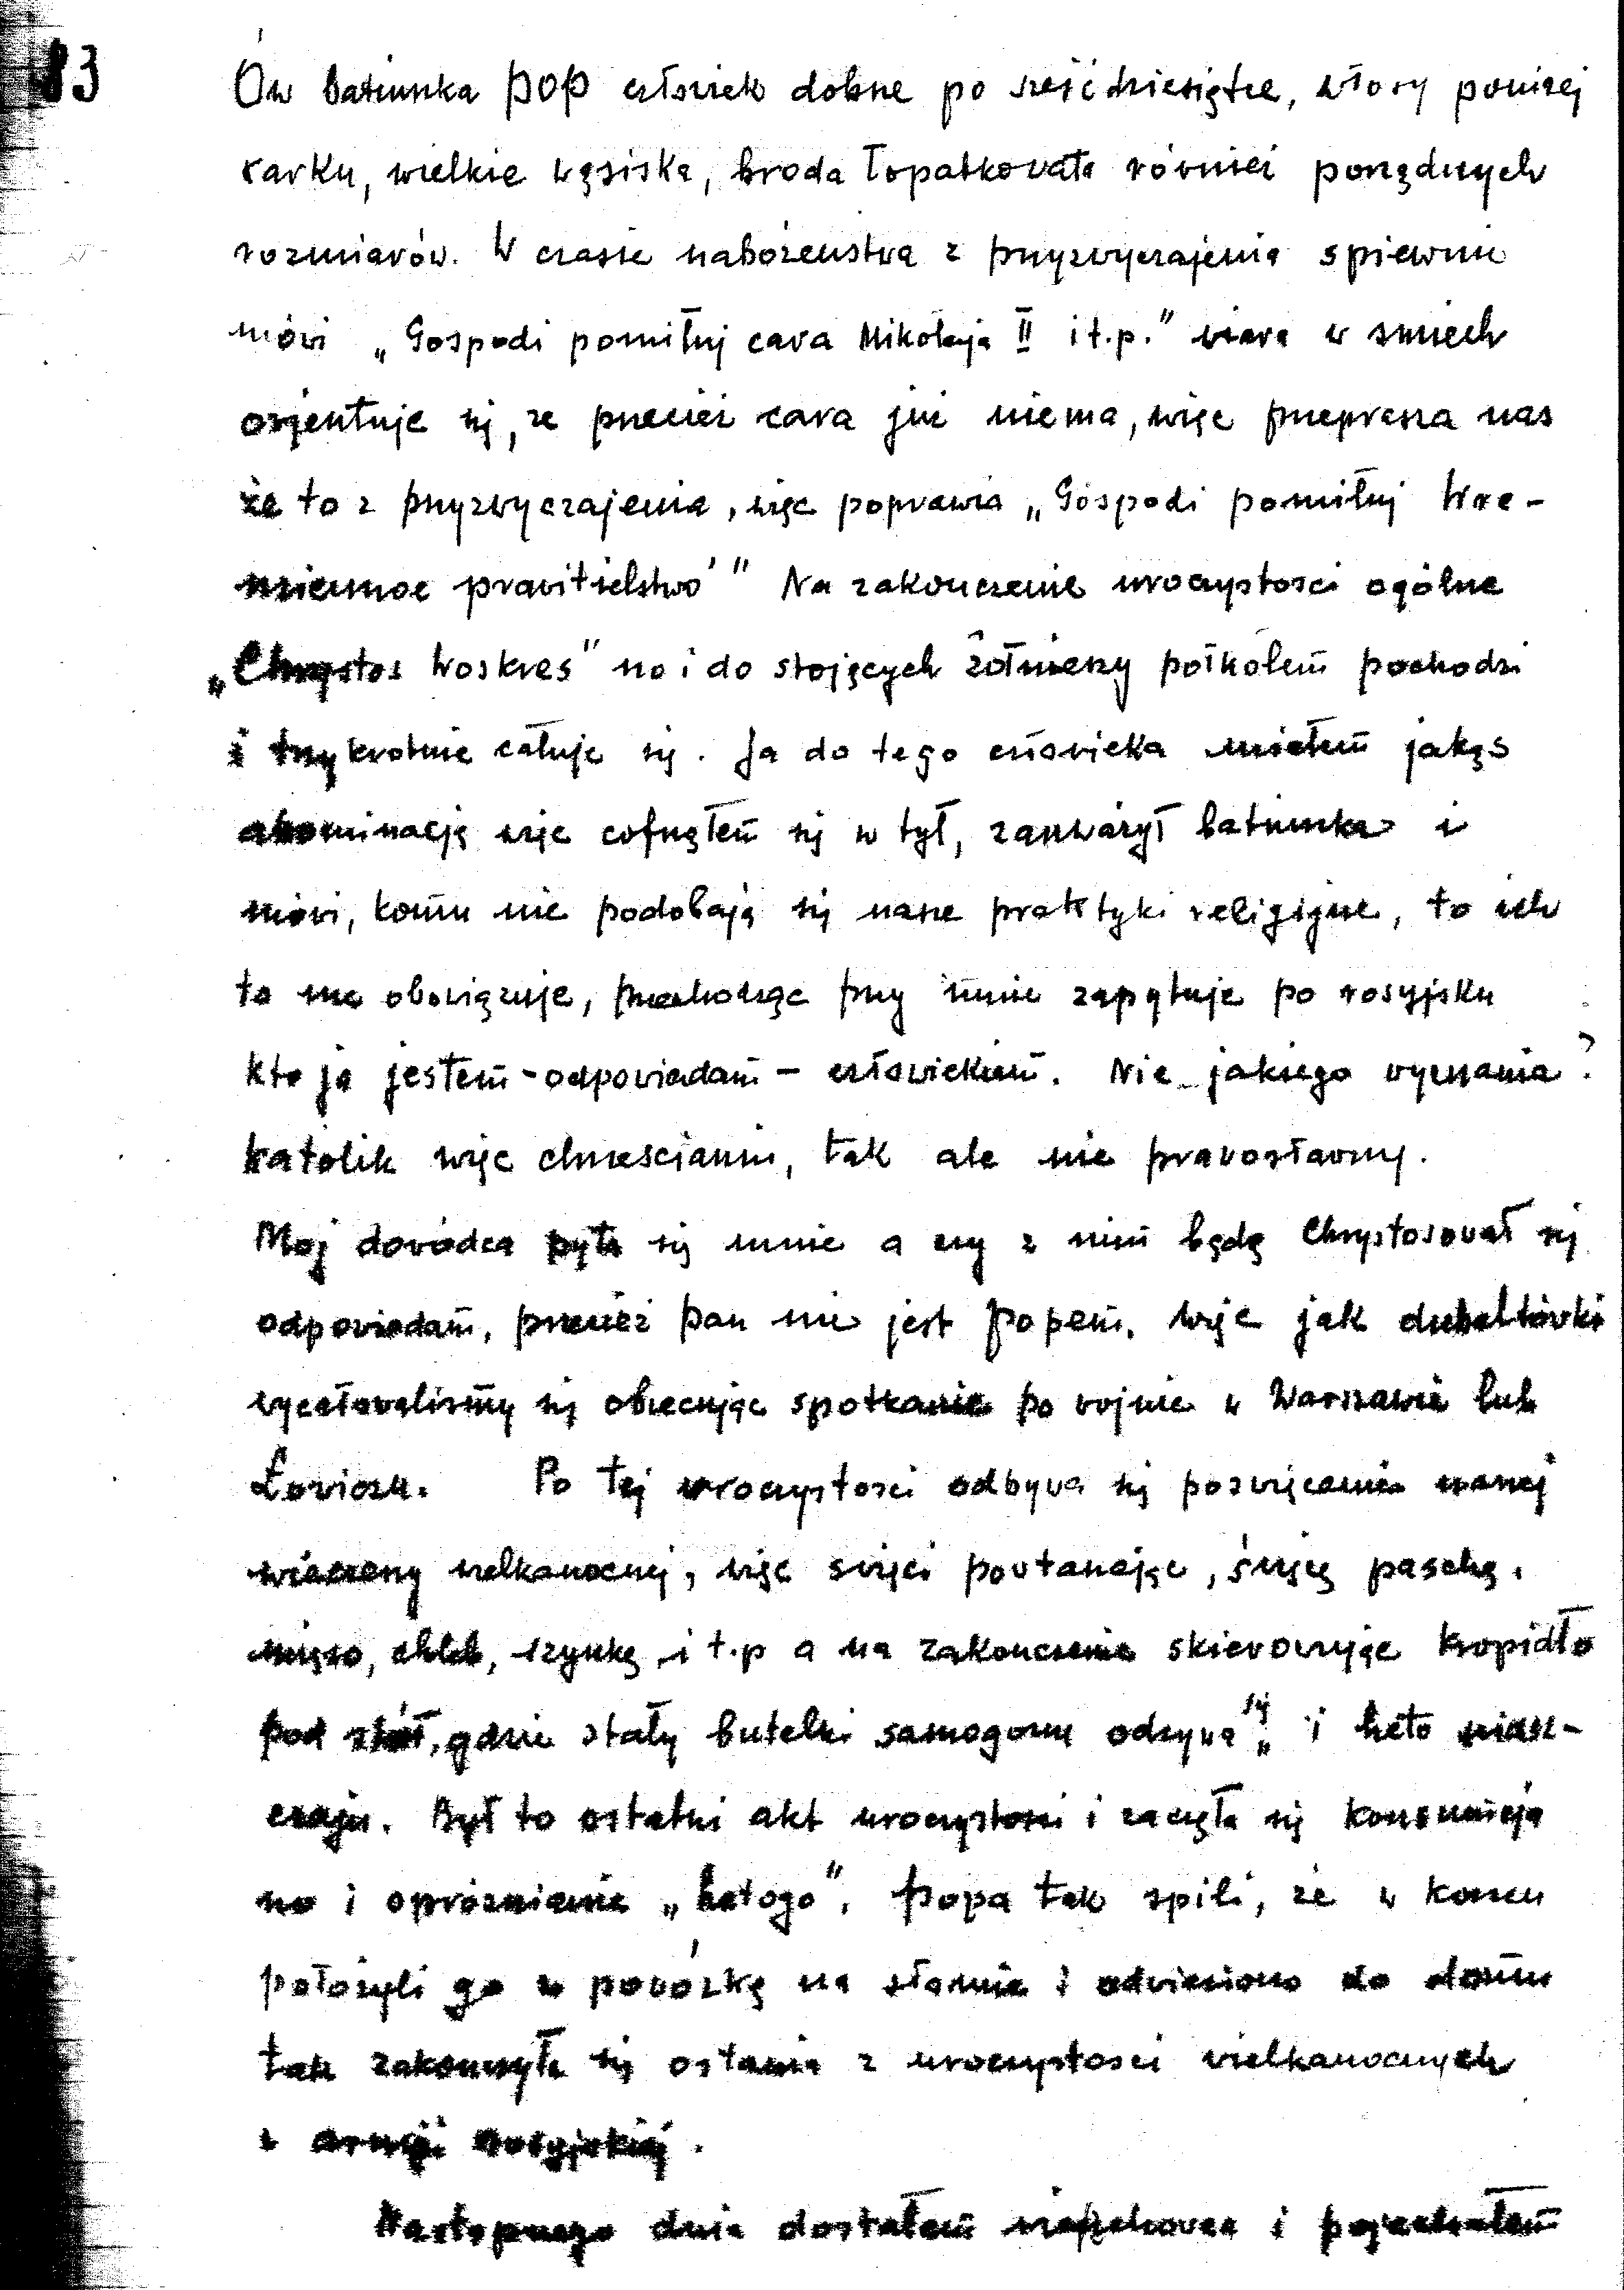 83
Ów batiuszka pop człowiek dobrze po sześćdziesiątce, włosy poniżej
karku, wielkie wąsiska, broda łopatkowata również porządnych
rozmiarów. W czasie nabożeństwa z przyzwyczajenia śpiewnie
mówi „Gospodi pomiłuj cara Mikołaja II i t.p." wiara w śmiech
orjentuje się, że przecież cara już niema, więc przeprasza nas
że to z przyzwyczajenia, więc poprawia „Gospodi pomiłuj Wre-
miennoe prawitielstwo" Na zakończenie uroczystości ogólne
„Chrystos Woskres" no i do stojących żołnierzy półkolem pochodzi
i trzykrotnie całuje się. Ja do tego człowieka miałem jakąś
abominację więc cofnąłem się w tył, zauważył batiuszka i
mówi, komu nie podobają się nasze praktyki religijne, to ich
to nie obowiązuje, przechodząc przy mnie zapytuje po rosyjsku
kto ja jestem - odpowiadam - człowiekiem. Nie jakiego wyznania?
katolik więc chrześcianin, tak ale nie prawosławny.
Moj dowódca pyta się mnie a czy z nim będę Chrystosował się
odpowiadam, przecież pan nie jest popem, więc jak dubeltówki
wycałowaliśmy się obiecując spotkanie po wojnie w Warszawie lub
Łowiczu. Po tej uroczystości odbywa się poswięcenie naszej
wieczerzy wielkanocnej, więc święci powtarzając, święcę paschę,
mięso, chleb, szynkę, i t.p a na zakonczenie skierowując kropidło
pod stół, gdzie stały butelki samogonu odzywa się „i heto
Był to ostatni akt uroczystości i zaczęła się konsumcja
no i opróżnianie „hetogo". Popa tak spili, że w koncu
położyli go w powózkę na słomie i odwieziono do domu
tak zakonczyła się ostania z uroczystosci wielkanocnych
w armji rosyjskiej.
Następnego dnia dostałem i pojechałem